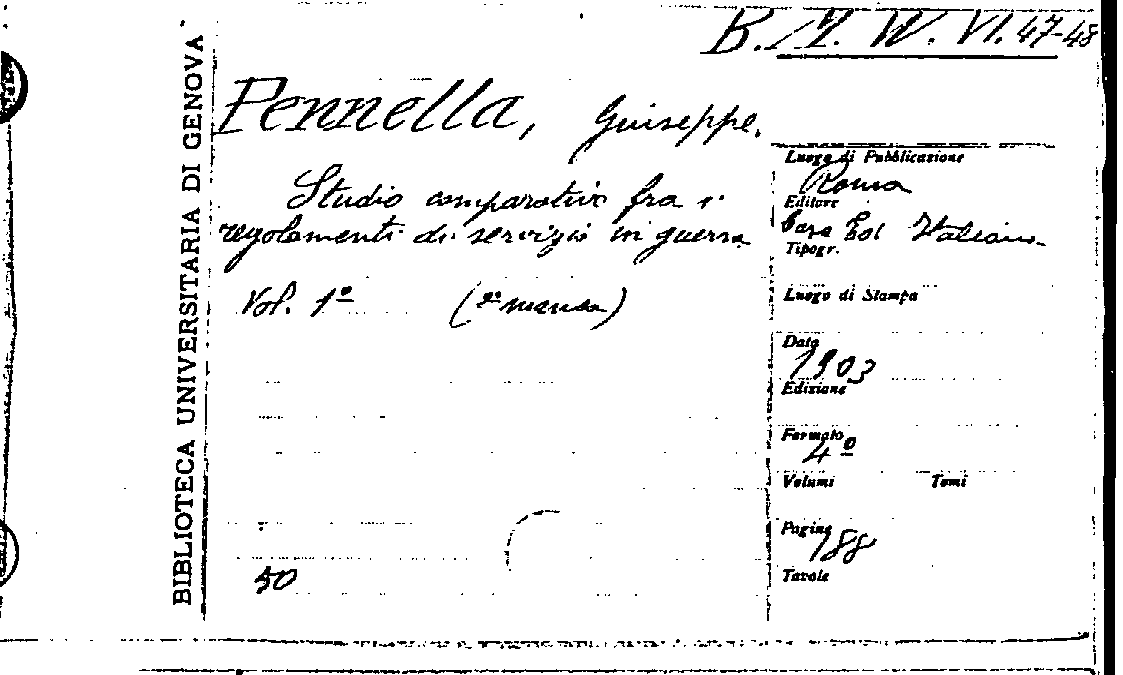 B. M. W. VI. 47-48
BIBLIOTECA UNIVERSITARIA DI GENOVA
Pennella, Giuseppe.
Studio comparativo fra i
regolamenti di servizio in guerra
Vol. 1º (2º manca)
50
Luogo di Pubblicazione
Roma
Editore
Casa Ed. Italiana
Tipogr.
Luogo di Stampa
Data
1903
Edizione
Formato
4º
Volumi Tomi
Pagine
188
Tavole